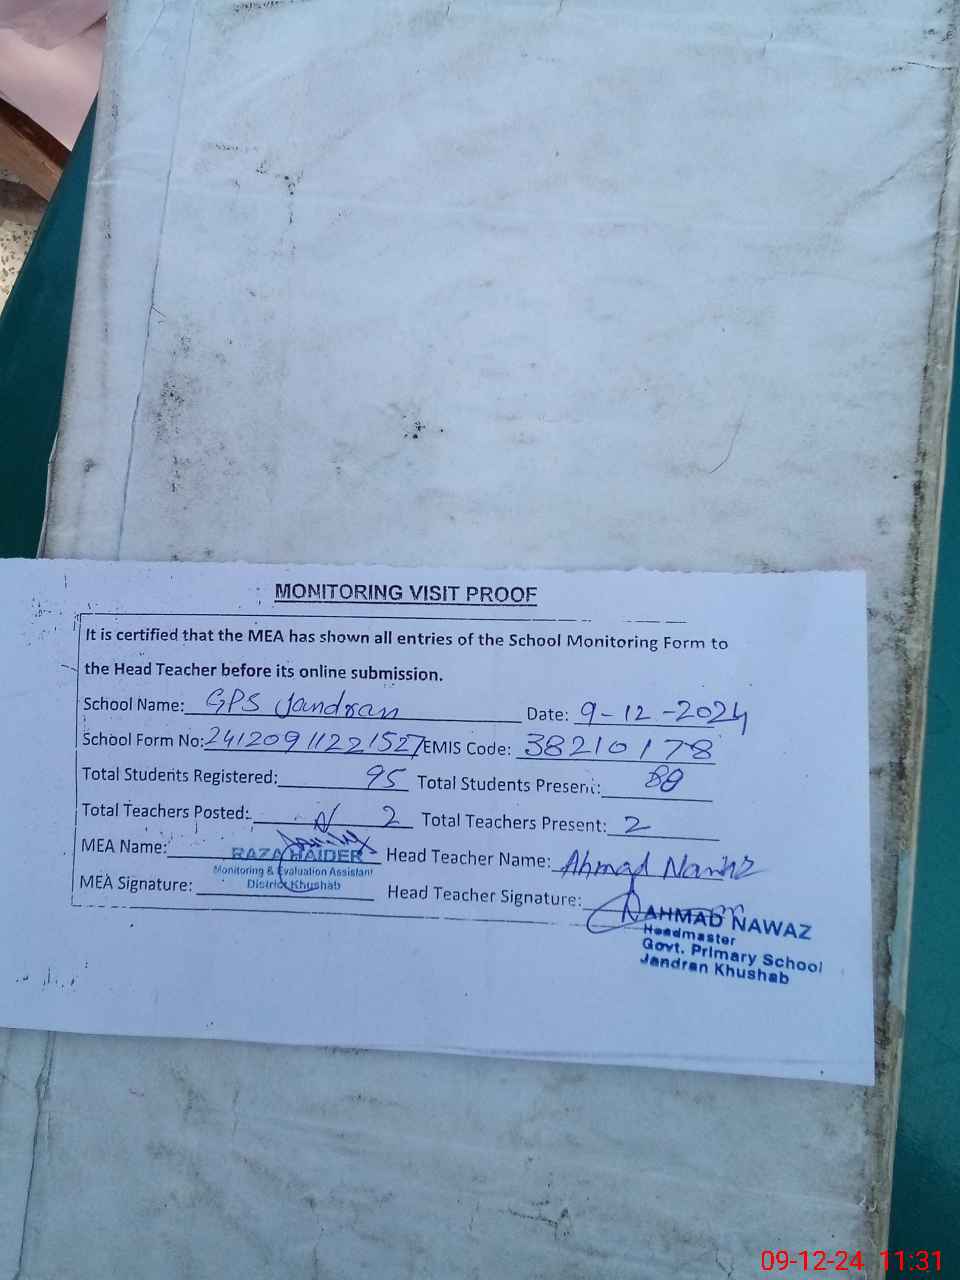 MONITORING VISIT PROOF
It is certified that the MEA has shown all entries of the School Monitoring Form to
the Head Teacher before its online submission.
School Name: GPS Jandran Date: 9-12-2024
School Form No: 24120911221527 EMIS Code: 38210178
Total Students Registered: 95 Total Students Present:
Total Teachers Posted: 2 Total Teachers Present: 2
MEA Name: Head Teacher Name: Ahmad Nawaz
RAZA HAIDER
Monitoring & Evaluation Assistant
District Khushab
MEA Signature: Head Teacher Signature:
AHMAD NAWAZ
Headmaster
Govt. Primary School
Jandran Khushab
09-12-24 11:31